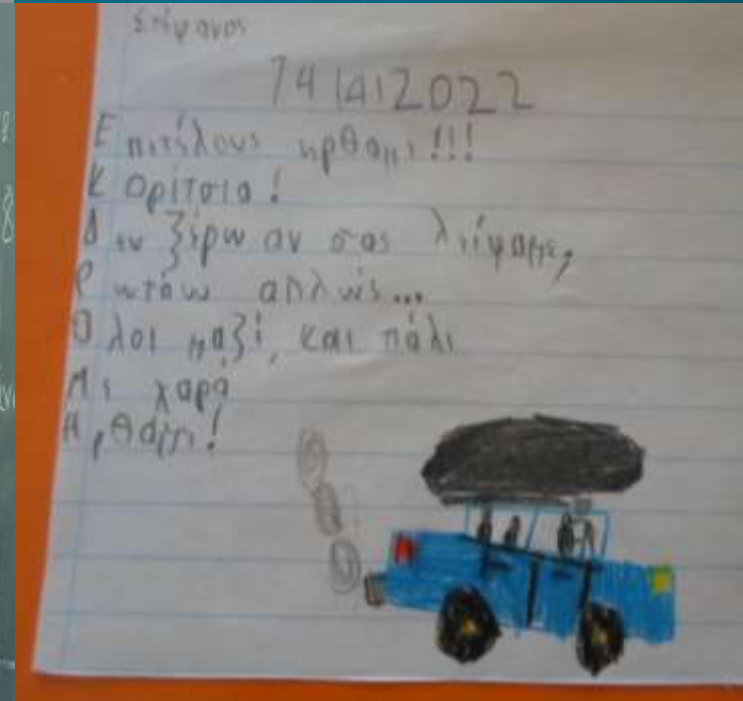 Στέφανος
14|4|2022
Επιτέλους ήρθαμε!!!
Κορίτσια!
Δεν ξέρω αν σας λείψαμε,
Ρωτάω απλώς...
Όλοι μαζί, και πάλι
Με χαρά
Ηρθάμε!